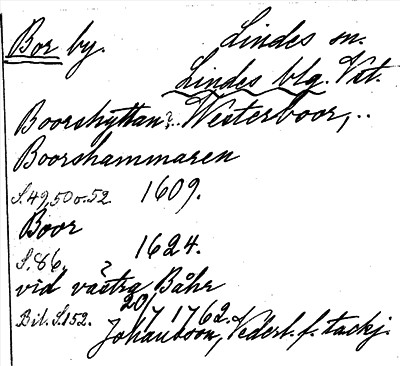 Bor by. Lindes sn.
Lindes blg. Vst.
Boorshyttan?.. Westerboor,..
Boorshammaren
S.49,50 o. 52. 1609.
Boor
S.86. 1624.
vid västra Båhr
?
Bil. S.152. 20/7 1762.
Johanboon, Nederl. f. tackj.